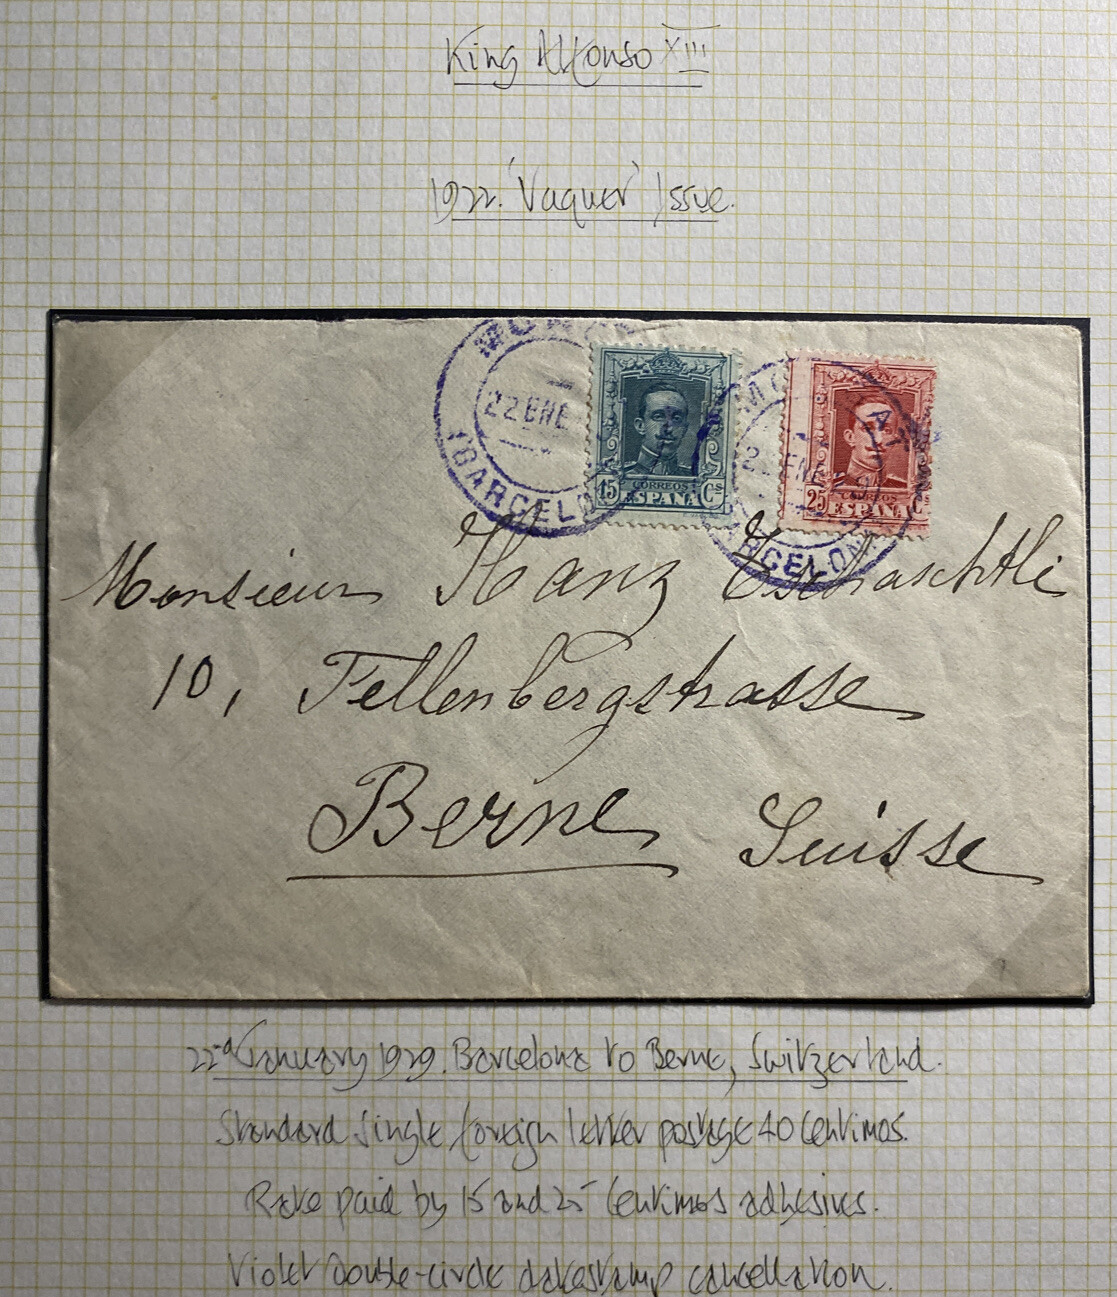 King Alfonso XIII
1922. 'Vaquer' Issue.
22 ENE
(BARCELO
15 CORREOS Cs
ESPAÑA
22 ENE 29
BARCELONA
25 CORREOS Cs
ESPAÑA
Monsieur Hanz
10, Fellenbergstrasse
Berne Suisse
22nd January 1929. Barcelona to Berne, Switzerland.
Standard single foreign letter postage 40 Centimos.
Rate paid by 15 and 25 Centimos adhesives.
Violet Double-circle datestamp cancellation.